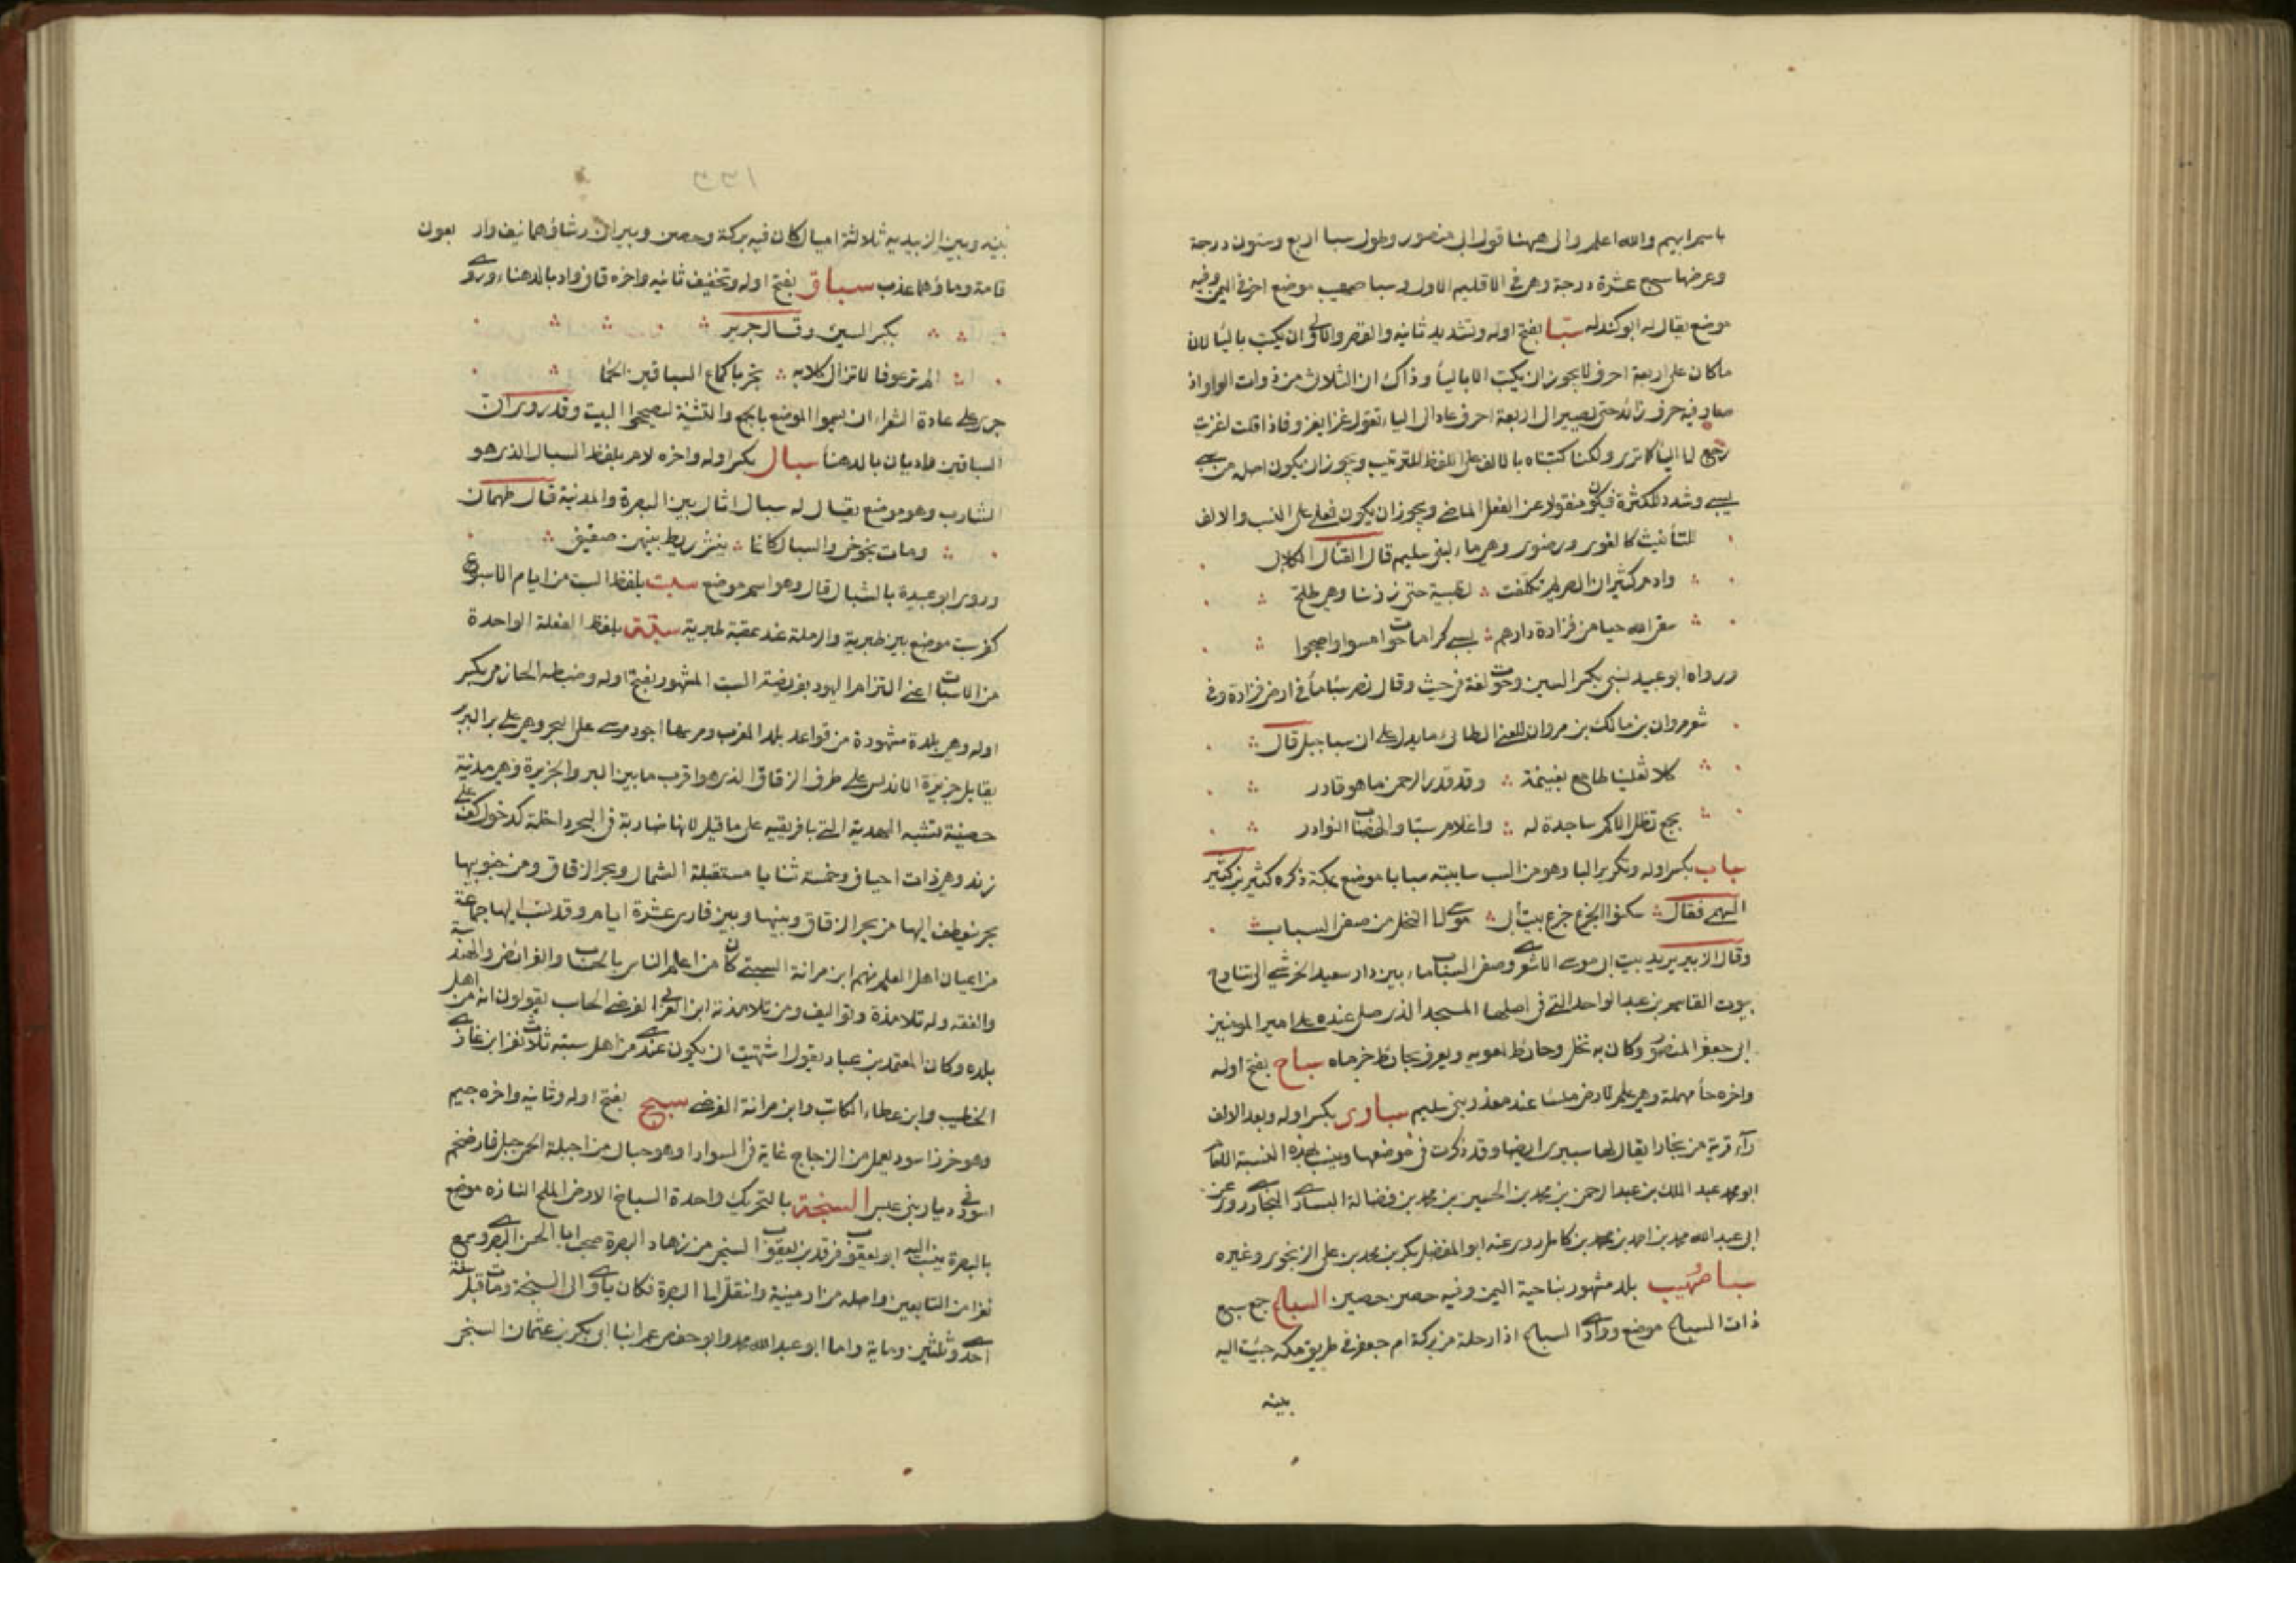 باسم ابيهم والله اعلم والى ههنا قول ابى منصور وطول سبا اربع وستون درجة
وعرضها سبع عشرة درجة وهى فى الاقليم الاول وسبا صهيب موضع اخر فى اليمن وفيه
موضع يقال له ابو كندله سبّا بفتح اوله وتشديد ثانيه والقصر والاولى ان يكتب باليا لان
ماكان على اربعة احرف لا يجوز ان يكتب الا باليا وذاك ان الثلاث من ذوات الواو اذ
صار فيه حرف زائد حتى يصير الى اربعة احرف عاد الى الياء تقول غزا يغزو فاذا قلت اغزيت
رجع الى اليا كاترى ولكنا كتبناه بالالف على اللفظ للترتيب ويجوز ان يكون اصله من سبى
يسبى وشدد للكثرة فيكون منقولا عن الفعل الماضى ويجوز ان يكون فعلى على النسب والالف
للتأنيث كالغوى ورضوى وهى ماء لبنى سليم قال القتال الكلابى
وادم كثيران الصريم تكلفت لظبية حتى زرننا وهى طلح
سقى الله حيا من فزارة دارهم بسبى كراما حوا امسوا واصبحوا
ورواه ابو عبيد بسبى بكسر السين وحوا لغة فى حيث وقال نصر سبا ما فى ارض فزارة وفى
شعر مروان بن مالك بن مروان المعنى الطائى ما يدل على ان سبا جبل قال
كلا ثعلبينا طامع بغنيمة وقد قدر الرحمن ما هو قادر
بجمع تظل الاكم ساجدة له واعلام سبا والهضاب النوادر
سباب بكسر اوله وتكرير البا وهو من السب ساببته سبابا موضع بمكة ذكره كثير بن كثير
السهمى فقال سكنوا الجزع جزع بيت ابى موسى الى النخل من صفى السباب
وقال الزبير يريد بيت ابى موسى الاشعرى وصفى السباب ماء بين دار سعيد الخرشى التى تناوح
بيوت القاسم بن عبد الواحد التى فى اصلها المسجد الذى صلى عنده على امير المومنين
ابى جعفر المنصور وكان به نخل وحائط لمعويه ويعرف بحائط خرماه سباح بفتح اوله
واخره حا مهملة وهى علم لارض ملسا عند معدن بنى سليم سبارى بكسر اوله وبعد الالف
رآء قرية من بخارا يقال لها سبيرى ايضا وقد ذكرت فى موضعها وينسب بهذه النسبة اللغا
ابو محمد عبد الملك بن عبد الرحمن بن محمد بن الحسين بن محمد بن فضالة السبارى البخارى روى عن
ابى عبد الله محمد بن احمد بن محمد بن كامل روى عنه ابو الفضل بكر بن محمد بن على الزنجرى وغيره
سبا صهيب بلد مشهور بناحية اليمن وفيه حصن حصين السباع جمع سبع
ذات السباع موضع ووادى السباع اذا رحلة من بركة ام جعفر فى طريق مكه جيئت اليه
بينه
١٣٣
بينه وبين الزبيديه ثلاثة اميال كان فيه بركة وحصن وبيران رشاؤهما نيف واربعون
قامة وماؤهما عذب سباق بفتح اوله وتخفيف ثانيه واخره قاف واد بالدهناء وروى
بكسر السين وقال جرير
الم تر عوفا لا تزال كلابه تجر باكماع السباقين الحما
جرى على عادة الشعراء ان يسموا الموضع بالجمع والتثنية ليصححوا البيت وقد روى ان
السباقين واديان بالدهنا سبال بكسر اوله واخره لام بلفظ السبال الذى هو
الشارب وهو موضع يقال له سبال اثال بين البصرة والمدينة قال طهمان
وبات بحوضى والسبال كانما ينشر ريط بينهن صفيق
وروى ابو عبيدة بالشبال قال وهو اسم موضع سبت بلفظ السبت من ايام الاسبوع
كفر سبت موضع بين طبرية والرملة عند عقبة طبرية سبتة بلفظ الفعلة الواحدة
من الاسبات اعنى التزام اليهود بفريضة السبت المشهور بفتح اوله وضبطه الحازمى بكسر
اوله وهى بلدة مشهودة من قواعد بلد المغرب ومرساها اجود مرسى على البحر وهى على بر البربر
يقابل جزيرة الاندلس على طرف الزقاق الذى هو اقرب ما بين البر والجزيرة وهى مدينة
حصينة تشبه المهدية التى بافريقيه على ما قيل لانها ضاربة فى البحر داخلة كدخول كف على
زند وهى ذات احياف وخمسة ثنايا مستقبلة الشمال وبحر الزقاق ومن جنوبها
بحر ينعطف اليها من بحر الزقاق وبينها وبين فاس عشرة ايام وقد نسب اليها جماعة
من اعيان اهل العلم منهم ابن مرانة السبتى كان من اعلم الناس بالحساب والفرائض والهندسة
والفقه وله تلامذة وتواليف ومن تلامذته ابن العربى الفرضى الحاسب يقولون انه من اهل
بلده وكان المعتمد بن عباد يقول اشتهيت ان يكون عندى من اهل سبته ثلاث نفر ابن غازى
الخطيب وابن عطاء الكاتب وابن مرانة الفرضى سبج بفتح اوله وثانيه واخره جيم
وهو خرز اسود يعمل من الزجاج غاية فى السواد وهو جبال من اجبلة الحمى جبل فارد ضخم
اسود فى ديار بنى عبس السبخة بالتحريك واحدة السباخ الارض الملح النازه موضع
بالبصرة ينسب اليه ابو يعقوب فرقد بن يعقوب السبخى من زهاد البصرة صحب ابا الحسن البصرى وسمع
نفرا من التابعين واصله من ارمينية وانتقل الى البصرة فكان ياوى الى السبخة ومات قبل سنة
احدى وثلثين ومائة واما ابو عبد الله محمد وابو حفص عمر ابنا ابى بكر بن عثمان السبخى